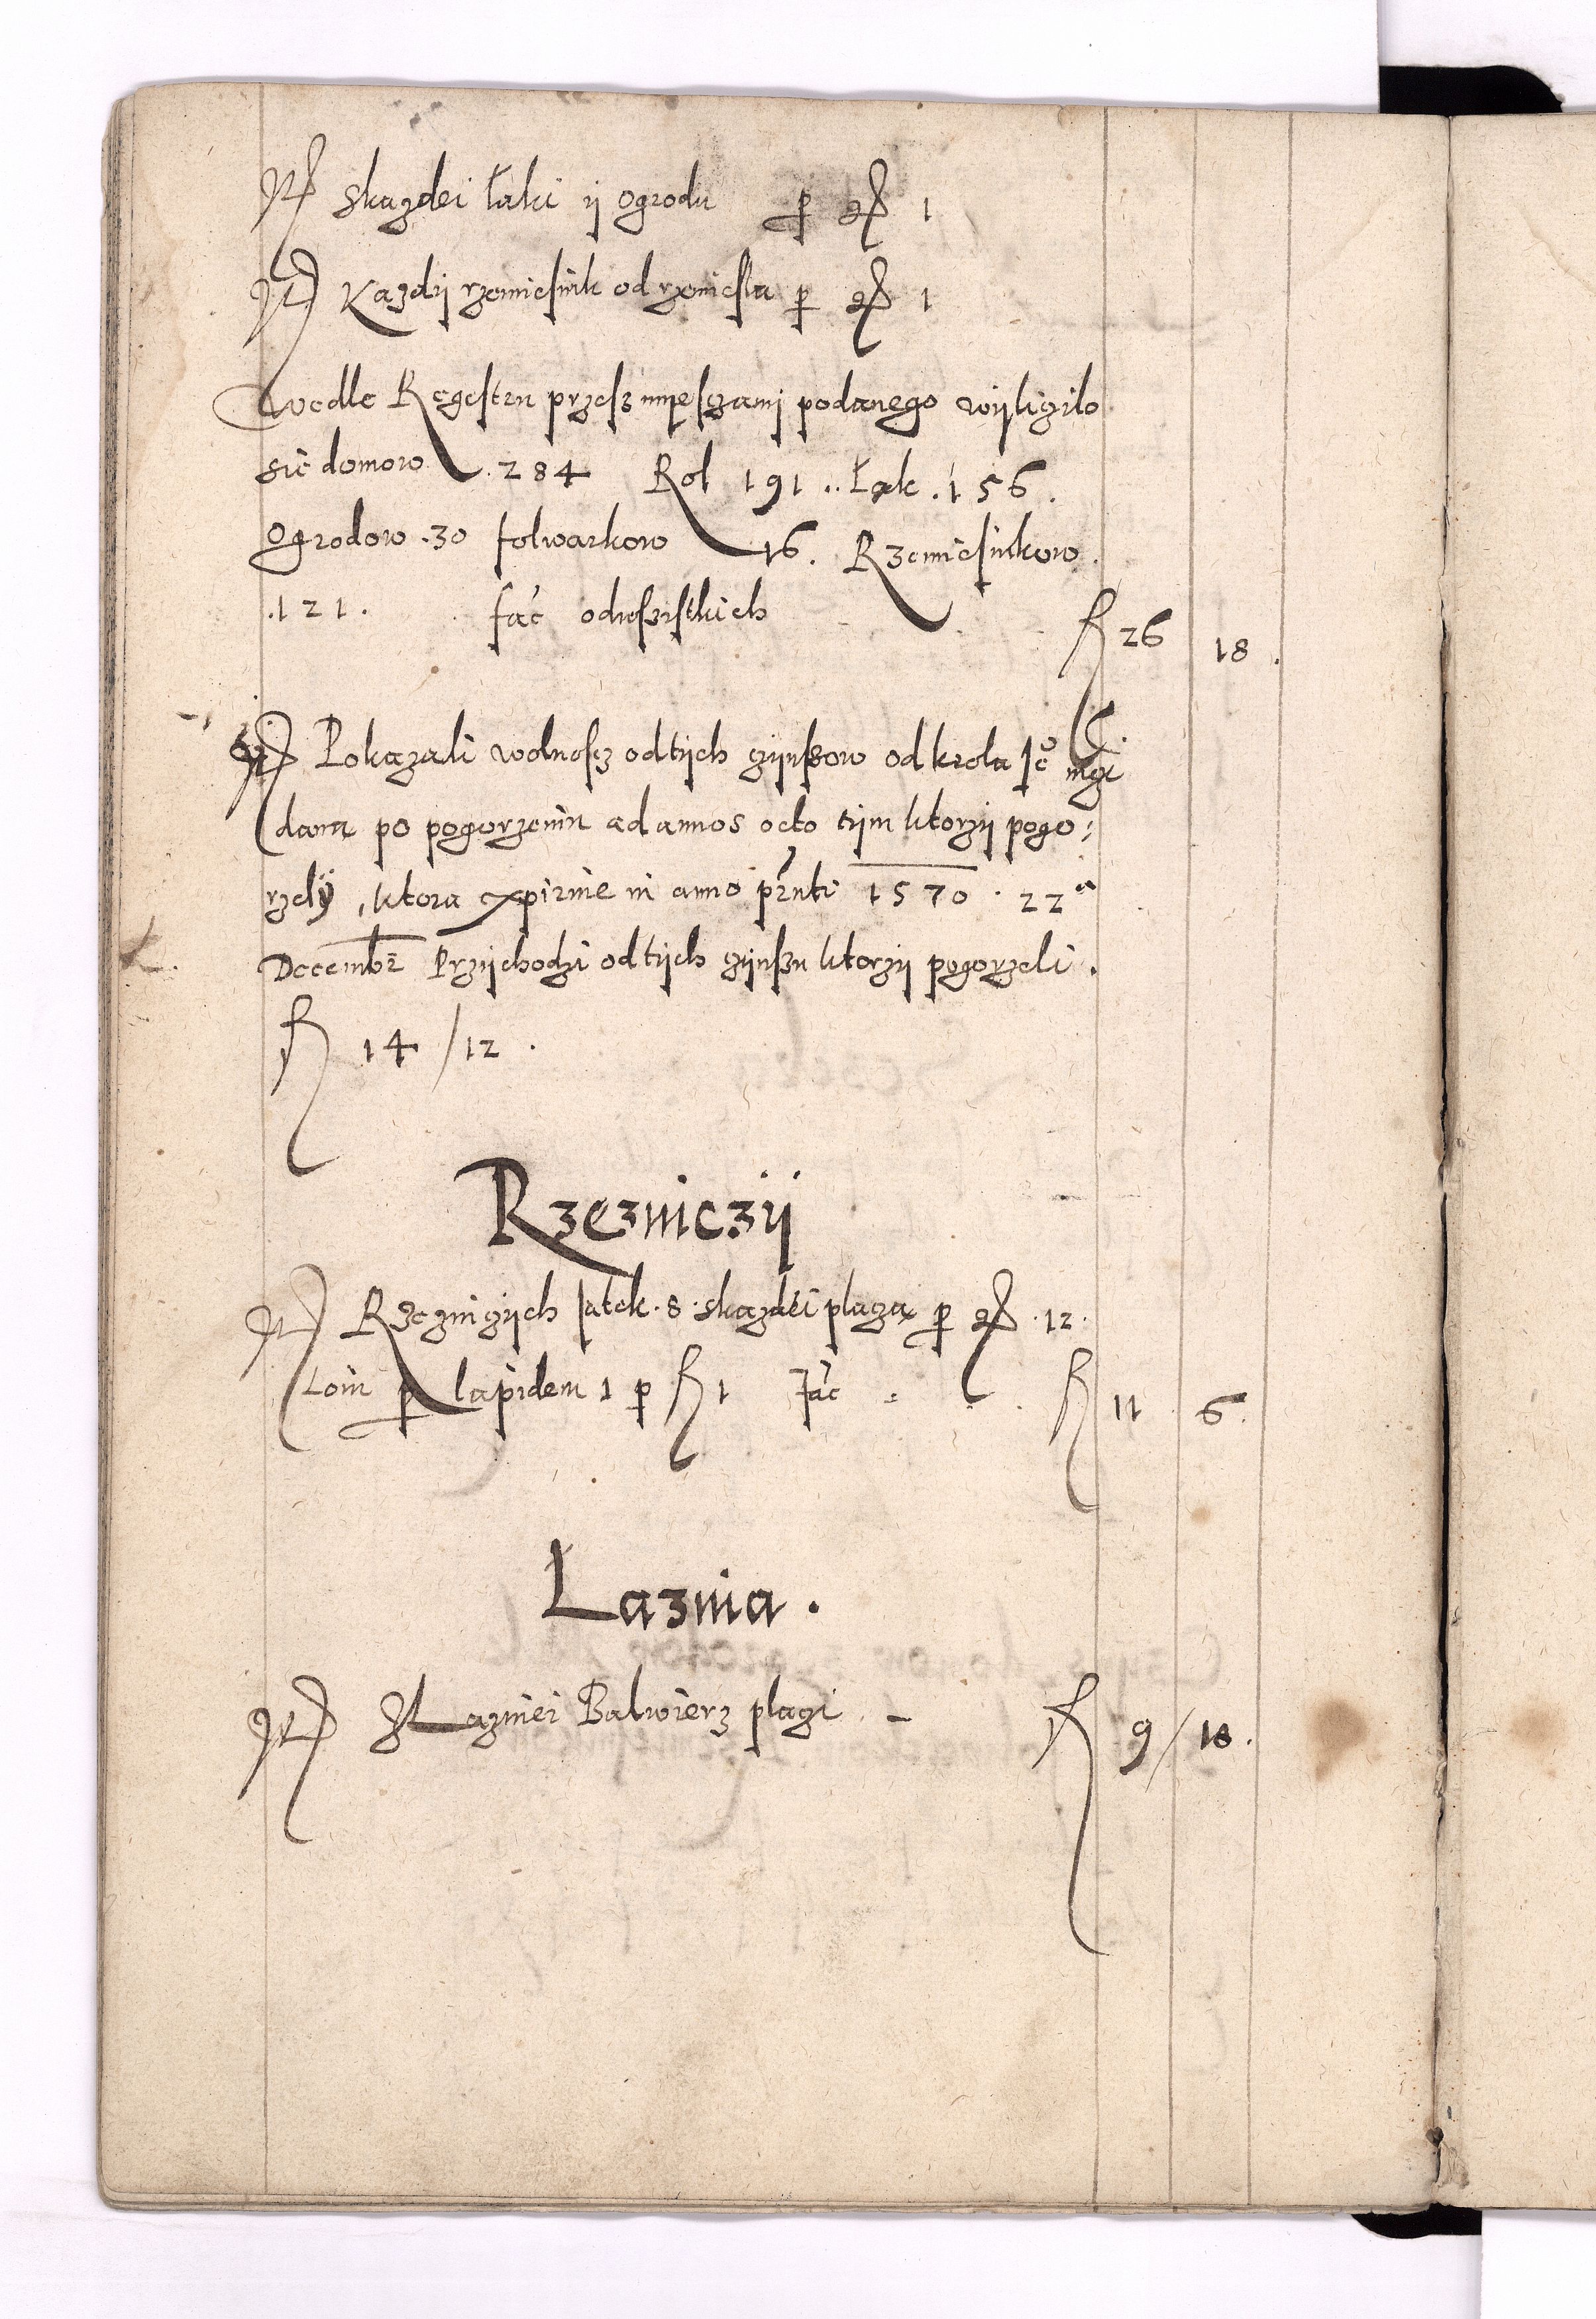 It skazdei łaki ij ogrodu p gr 1
It Kazdij rzemiesnik od rzemiesla p gr 1
wedle Regestru przesz myesczanij podanego wijliczilo
sie domow . 284 Rol 191 .. Łąk . 156 .
Ogrodow . 30 folwarkow 16 . Rzemiesnikow .
. 121 . fac̃ odwszistkich fl 26 18 .
It Pokazali wolnoscz odtijch czijnszow od krola Je° mczi
dana po pogorzeniu ad annos octo tijm ktorzij pogo:
rzelÿ , ktora expiruie in anno pr̃nti 1570 . 22ª
Decembr̃ Przijchodzi odtijch czijnszu ktorzij pogorzeli .
fl 14 / 12 .
Rzezniczij
It Rzezniczijch Jatek . 8 . skazdei placzą p gr . 12 .
Loiu p lapidem 1 p fl 1 fac̃ fl 11 6 .
Łaznia .
It Z Łazniei Balwierz placzi - fl 9 / 18 .